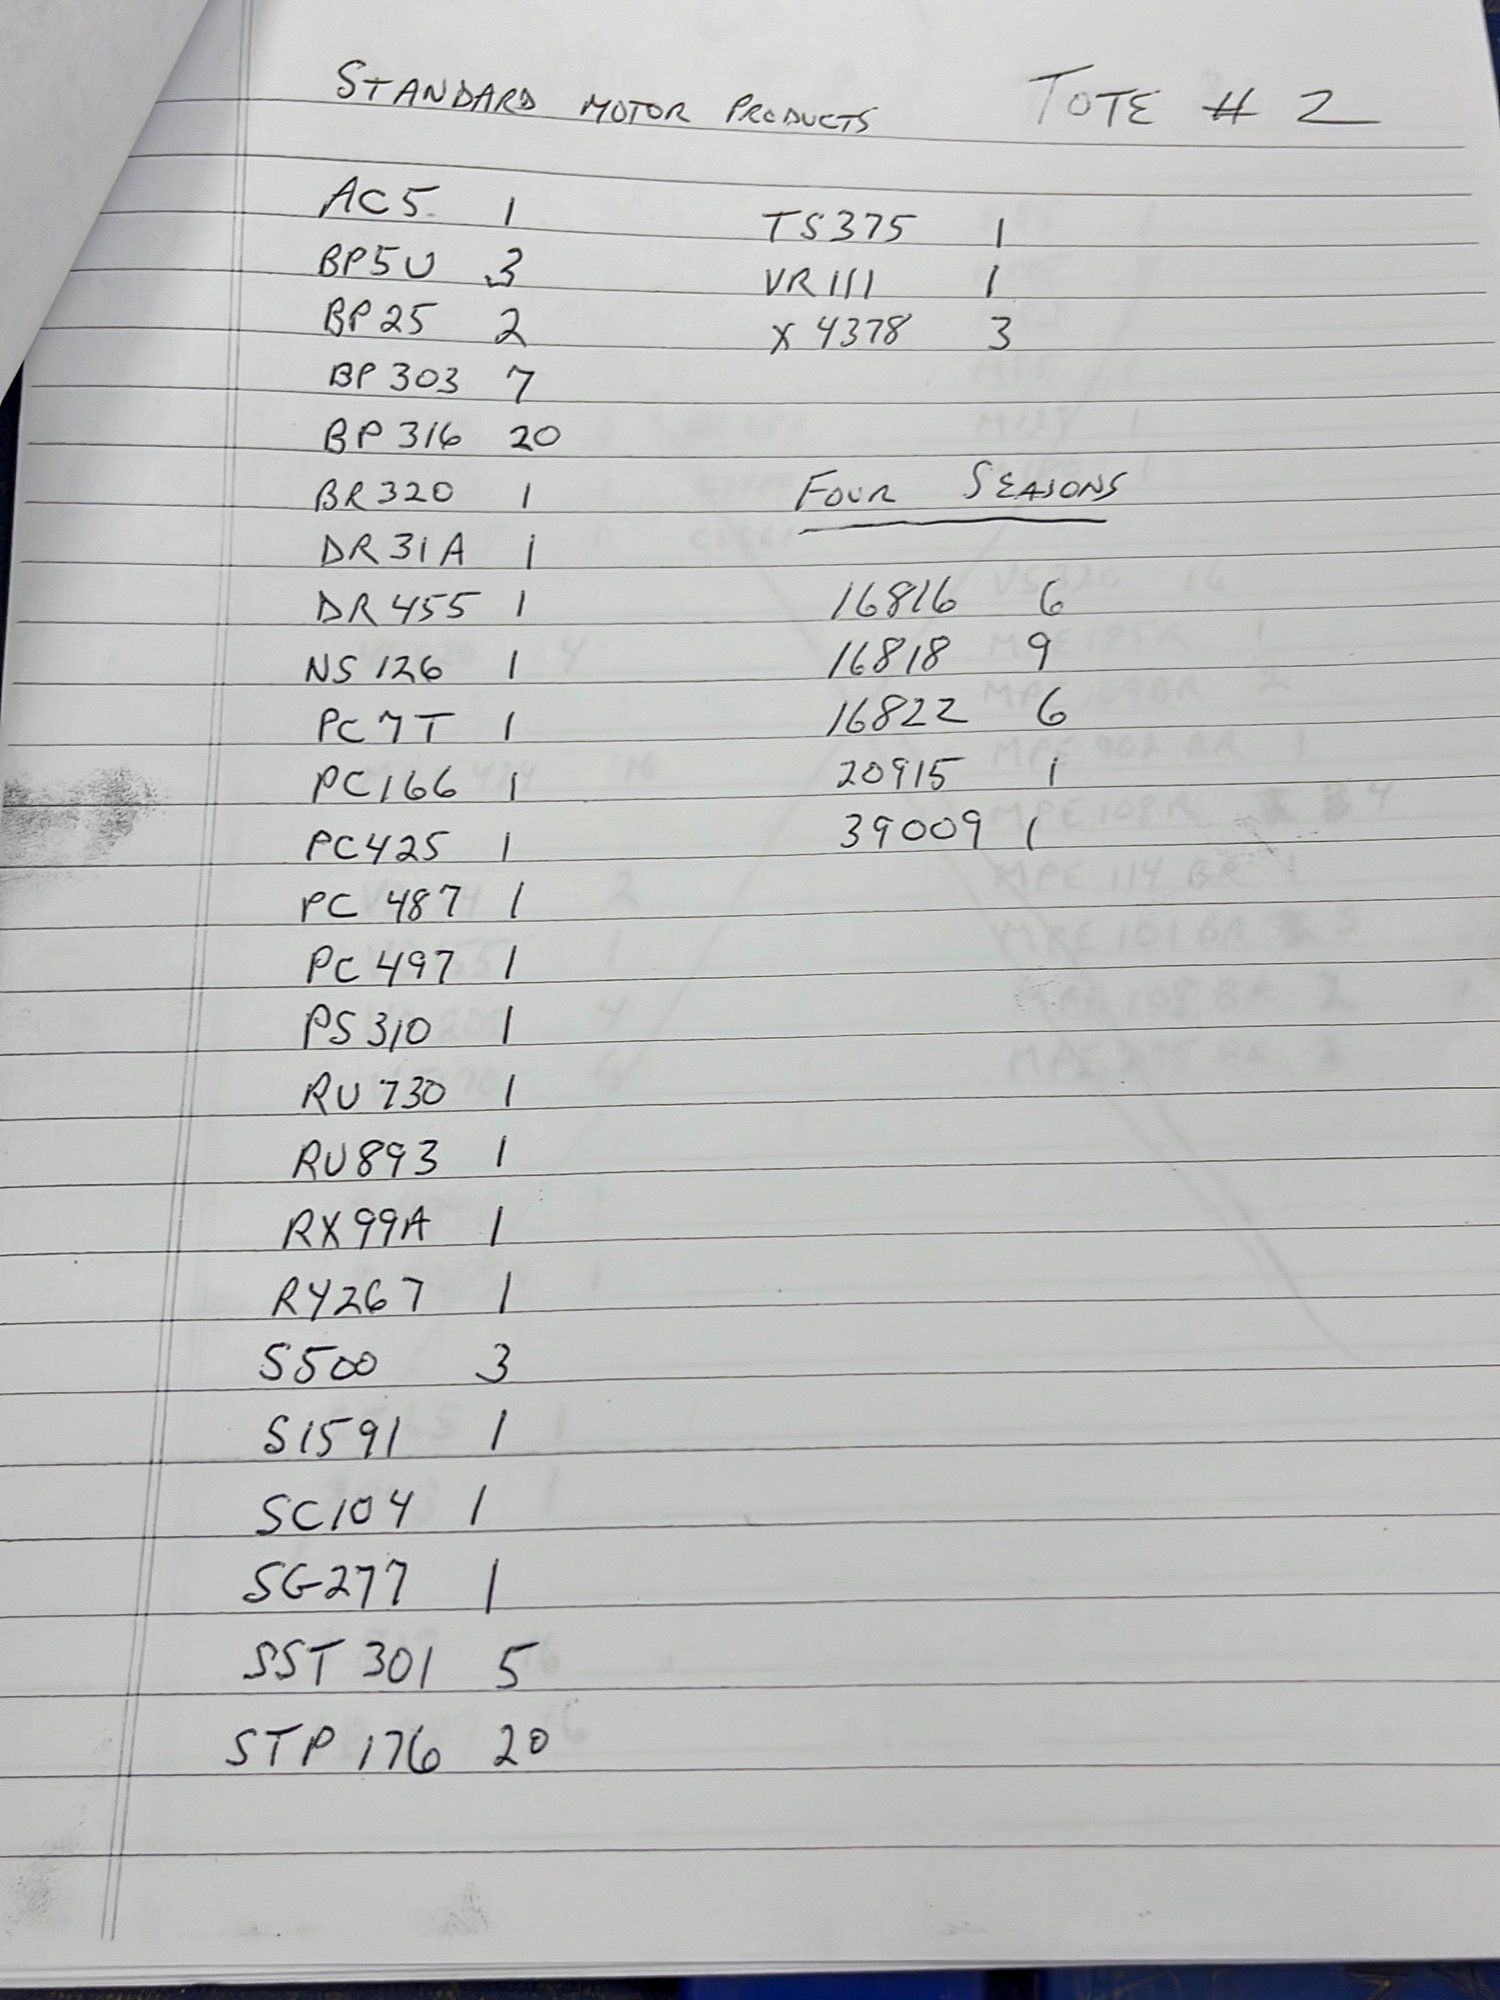 STANDARD MOTOR PRODUCTS TOTE # 2
AC5 1
BP5U 3
BP25 2
BP303 7
BP316 20
BR320 1
DR31A 1
DR455 1
NS126 1
PC7T 1
PC166 1
PC425 1
PC487 1
PC497 1
PS310 1
RU730 1
RU893 1
RX99A 1
RY267 1
S500 3
S1591 1
SC104 1
SG277 1
SST301 5
STP176 20
TS375 1
VR111 1
X4378 3
FOUR SEASONS
16816 6
16818 9
16822 6
20915 1
39009 1